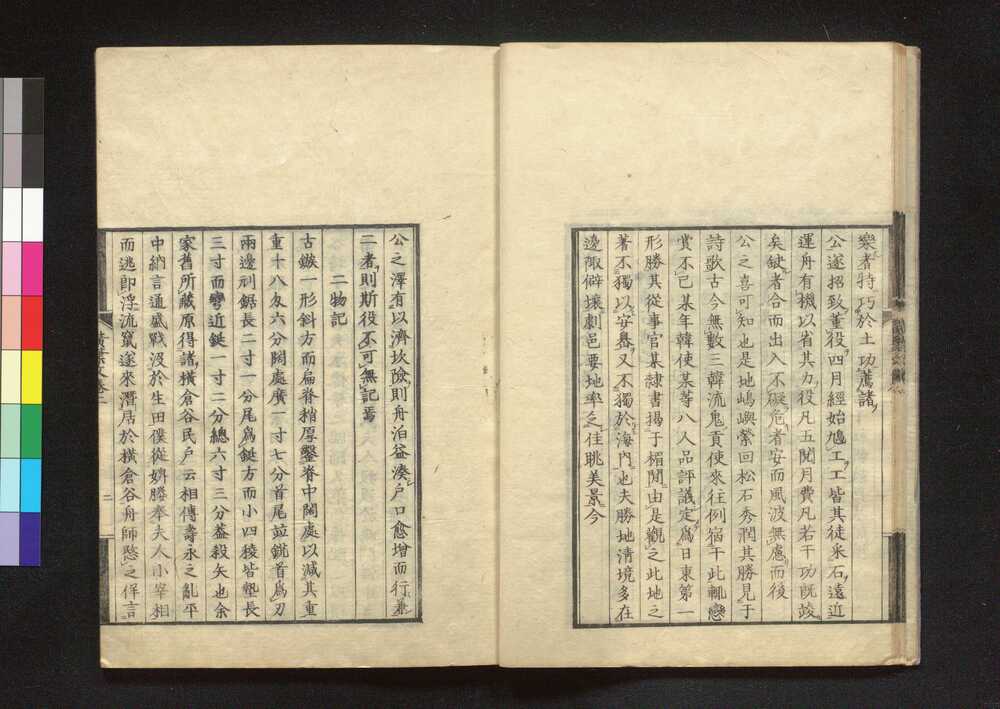 樂者特巧於土功薦諸
公遂招致董役四月經始鳩工工皆其徒采石遠近
運舟有機以省其力役凡五閱月費凡若干功旣竣
矣缺者合而出入不礙危者安而風波無慮而後
公之喜可知也是地嶋嶼縈回松石秀潤其勝見于
詩歌古今無數三韓流鬼貢使來往例宿于此輒戀
賞不已某年韓使某等八人品評議定爲日東第一
形勝其從事官某隷書揭于楣間由是觀之此地之
著不獨以安晷又不獨於海内也夫勝地清境多在
邊陬僻壤劇邑要地率之佳眺美景今
公之澤有以濟坎險則舟泊益湊戶口愈增而行兼
二者則斯役不可無記焉
二物記
古鏃一形斜方而扁脊稍厚鑿脊中闊處以減其重
重十八匁六分闊處廣一寸七分首尾竝銳首爲刃
兩邊刻鋸長二寸一分尾爲鋌方而小四稜皆墊長
三寸而彎近鋌一寸二分總六寸三分蓋殺矢也余
家舊所藏原得諸横倉谷民戶云相傳壽永之亂平
中納言通盛戰沒於生田僕從嬪媵奉夫人小宰相
而逃卽浮流竄遂來潛居於横倉谷舟師愍之佯言
二